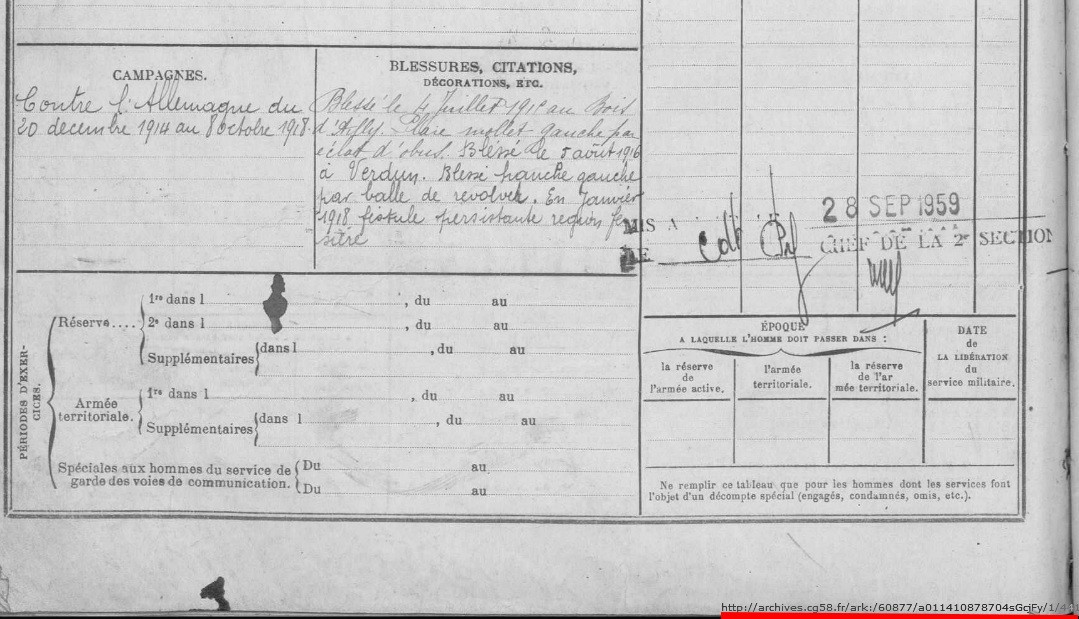 CAMPAGNES.
Contre l'Allemagne du
20 décembre 1914 au 8 octobre 1918.
BLESSURES, CITATIONS,
DÉCORATIONS, ETC.
Blessé le 4 Juillet 191 au Bois
d'Ailly. Plaie mollet gauche par
éclat d'obus. Blessé le 5 août 1916
à Verdun. Blessé hanche gauche
par balle de revolver. En Janvier
1918 fistule persistante région fes
sière
MIS A
DE
28 SEP 1959
CHEF DE LA 2e SECTION
PÉRIODES D'EXER-
CICES.
Réserve....
1re dans l , du au
2e dans l , du au
Supplémentaires dans l , du au
Armée
territoriale.
1re dans l , du au
Supplémentaires dans l , du au
Spéciales aux hommes du service de
garde des voies de communication.
Du au
Du au
ÉPOQUE
A LAQUELLE L'HOMME DOIT PASSER DANS :
la réserve
de
l'armée active.
l'armée
territoriale.
la réserve
de l'ar
mée territoriale.
DATE
de
LA LIBÉRATION
du
service militaire.
Ne remplir ce tableau que pour les hommes dont les services font
l'objet d'un décompte spécial (engagés, condamnés, omis, etc.).
http://archives.cg58.fr/ark:/60877/a011410878704sGcjFy/1/44